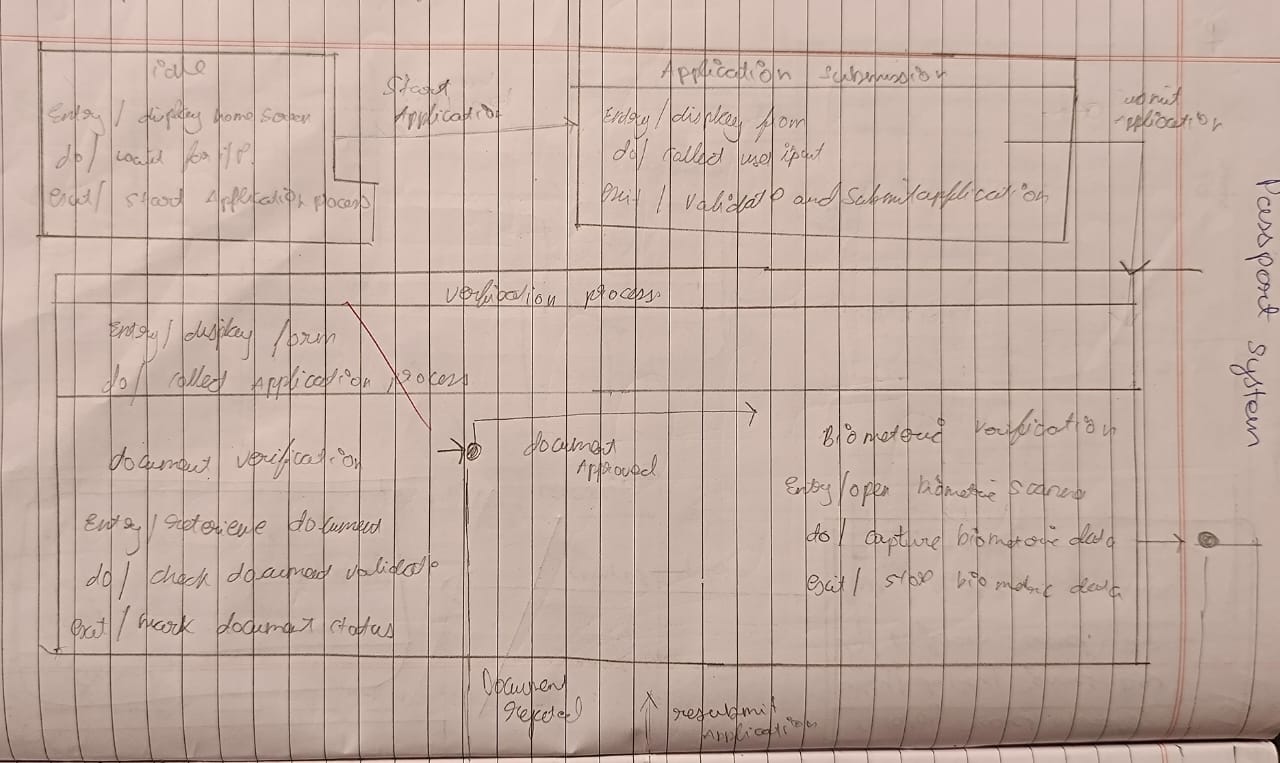 idle
Entry / display home screen
do / waid for i/P.
exit / stard Application process
Start
Application
Application submission
Entry / display from
do / collect user iput
exit / validate and submit application
Application
Passport system
verfication process
Entry / display form
do / collect Application process
document verification
Entry / reterieve document
do / check document validate
exit / mark document status
document
Approved
Biometric verification
Entry / open biometric
do / capture biometric data
exit / biometric data
Document
rejected
resubmit
Application